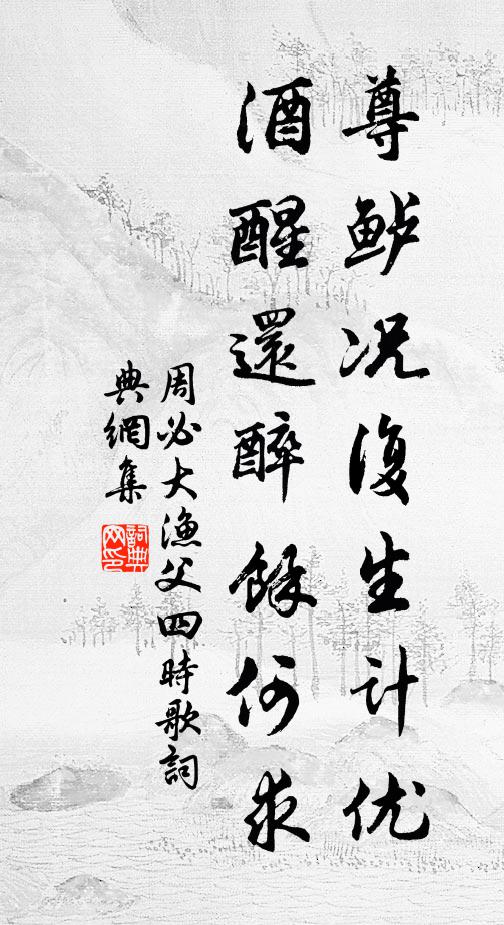 尊鲈况復生计优
酒醒還醉餘何求
周必大漁父四時歌詞
典網集
詞典
网印